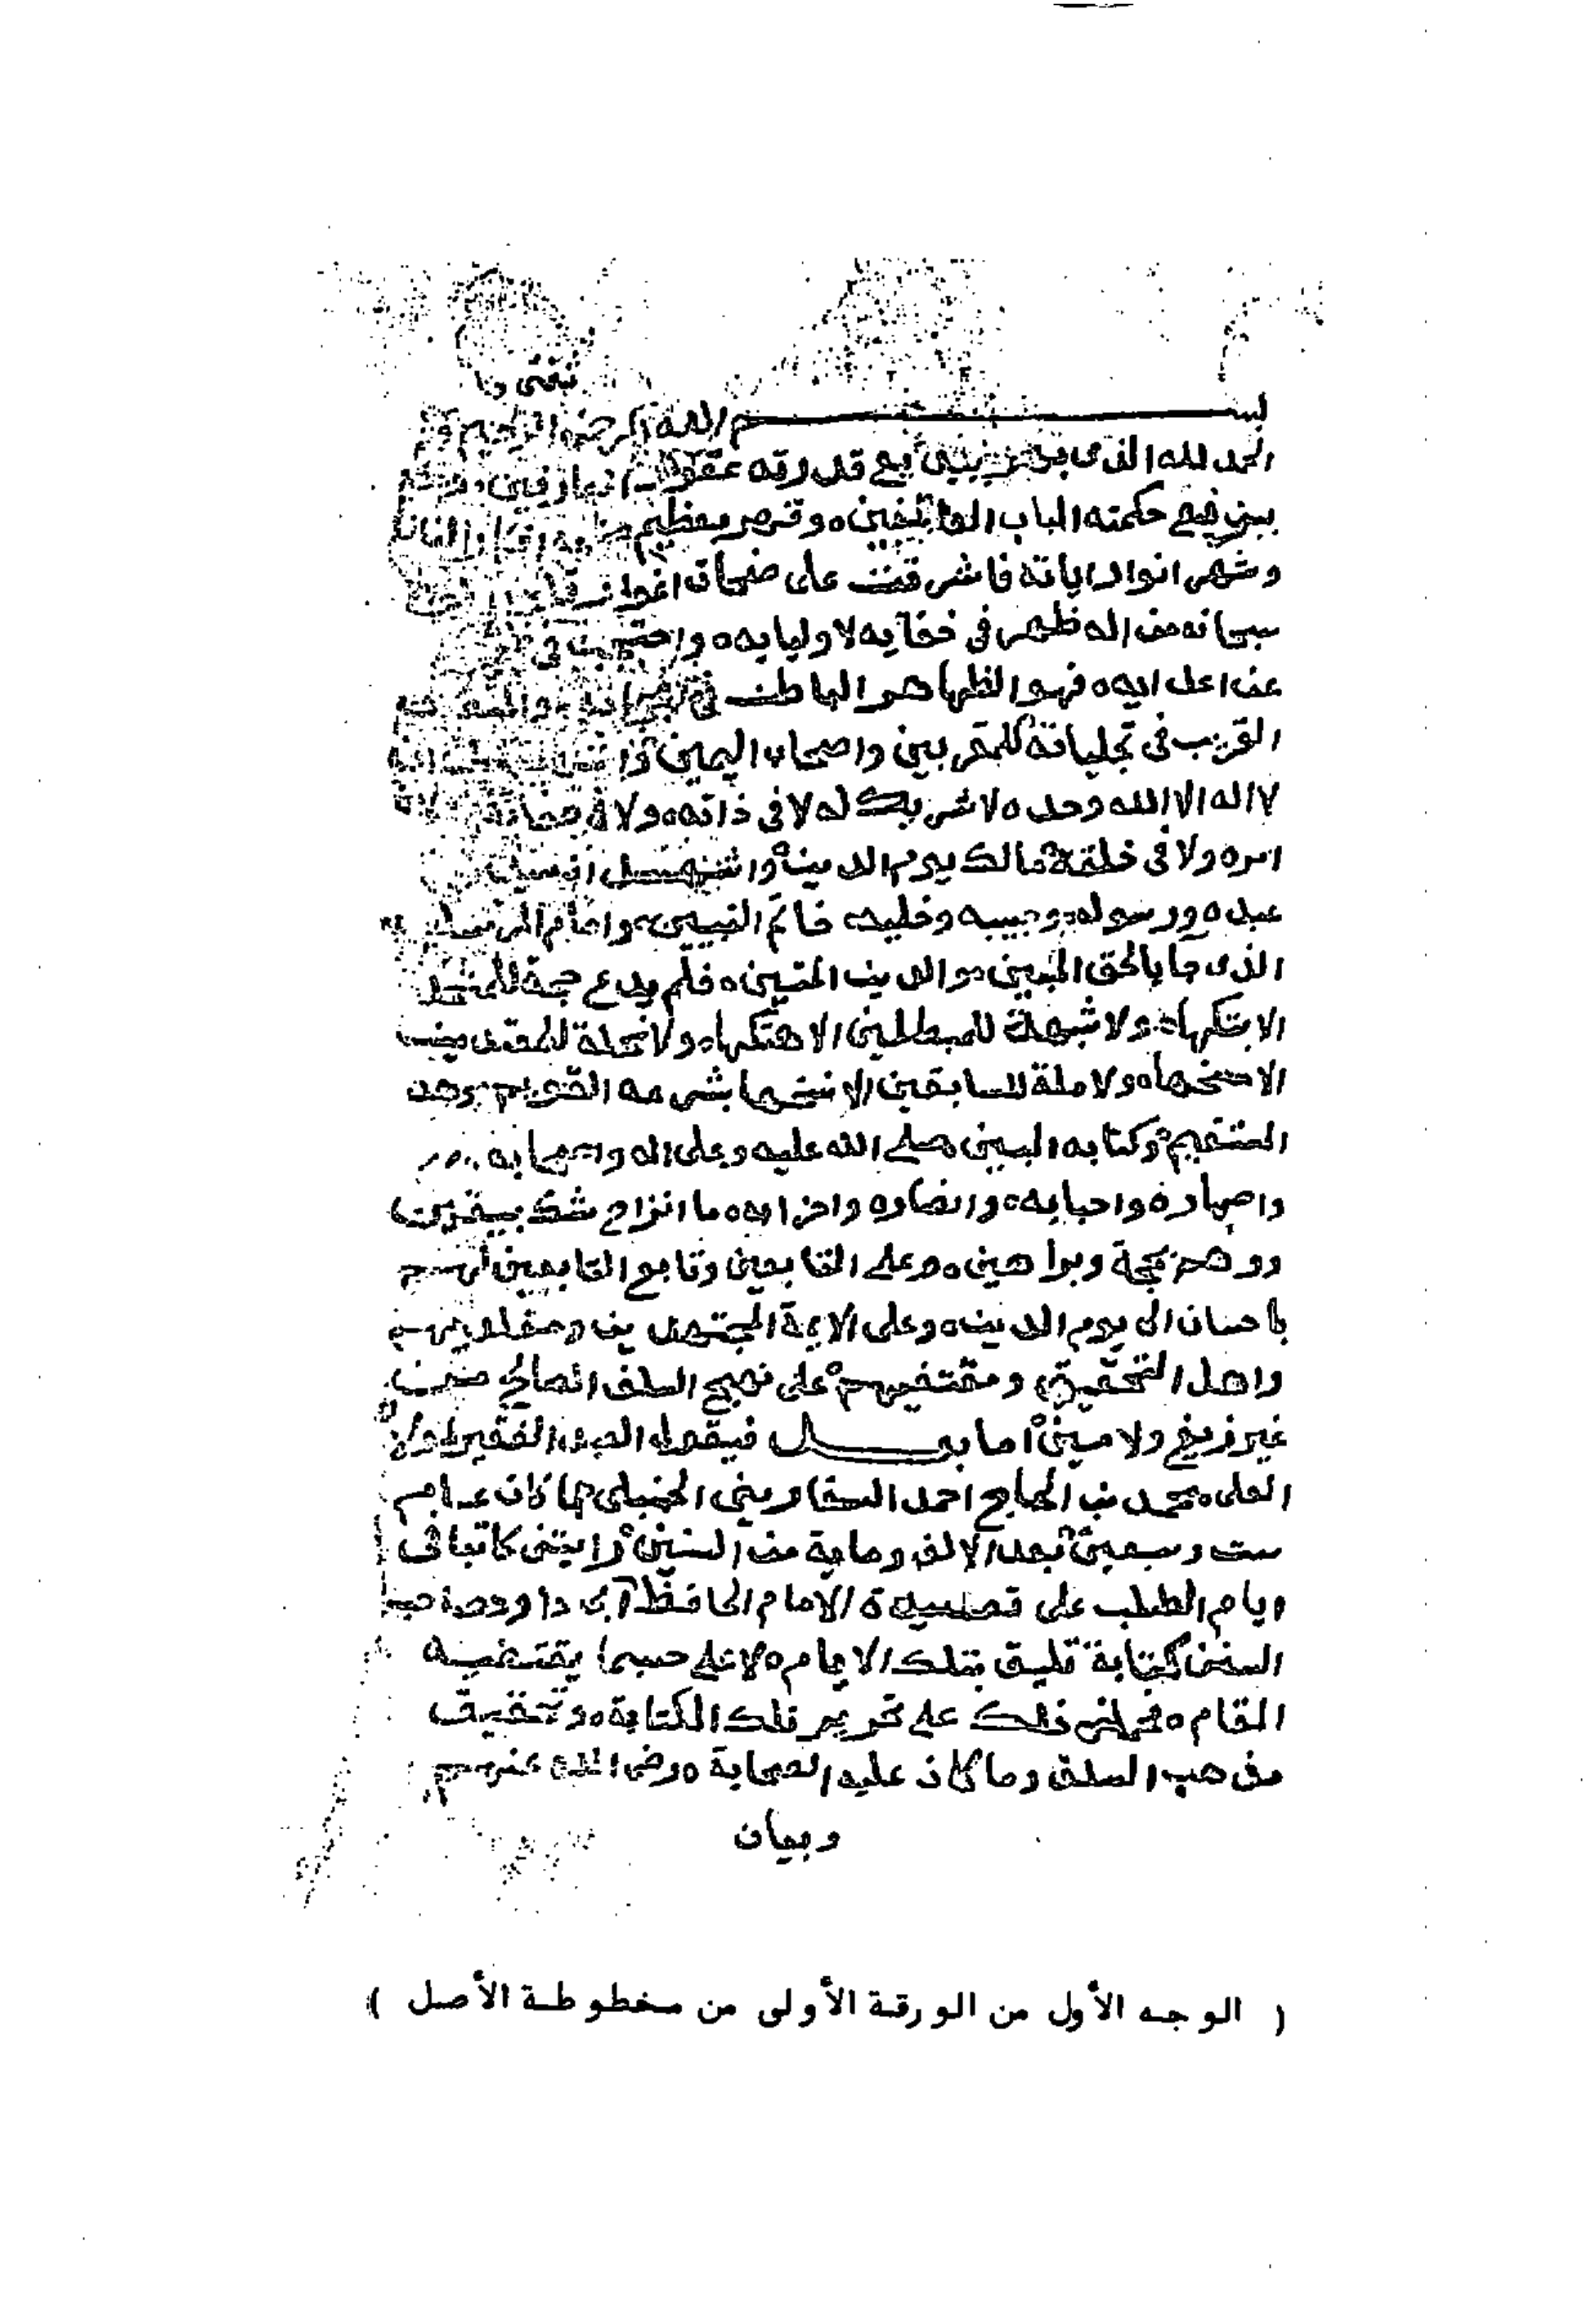 بسم الله الرحمن الرحيم
الحمد لله الذي قدرته عقول
حكمته الباب
وشهر انوار اياته فاشرقت على صفحات
سبحانه من اله ظهر في خفايه لاوليايه واحتجب في
عن اعدايه فهو الظاهر الباطن في
القريب في تجلياته للمقربين واصحاب اليمين
لا اله الا الله وحده لا شريك له لا في ذاته ولا في صفاته
امره ولا في خلقه مالك يوم الدين واشهد ان
عبده ورسوله وحبيبه وخليله خاتم النبيين وامام المرسلين
الذي جا بالحق المبين والدين المتين فلم يدع حجة
الا بتكها ولا شبهة للمبطلين الا هتكها ولا نحلة
الا ولا ملة للسابقين الا نسخها بشرعه القويم
المستقيم وكتابه المبين صلى الله عليه وعلى اله واصحابه
واصهاره واحبابه وانصاره واحزابه ما انزاح شك بيقين
ووهم بحجة وبراهين وعلى التابعين وتابع التابعين لهم
باحسان الى يوم الدين وعلى الايمة المجتهدين ومقلديهم
واهل التحقيق ومقتفيهم على نهج السلف الصالح من
غير زيغ ولا مين اما بعد فيقول العبد الفقير لمولاه
العلي محمد بن الحاج احمد السفاريني الحنبلي لما كان عام
ست وسبعين بعد الالف وماية من السنين رايتني كاتبا في
ايام الطلب على قصيدة الامام الحافظ ابي داود صاحب
السنن كتابة تليق بتلك الايام لا على حسبما يقتضيه
المقام فحملني ذلك على تحرير تلك الكتابة وتحقيق
مذهب السلف وما كان عليه الصحابة رضي الله عنهم
وبيان
( الوجه الأول من الورقة الأولى من مخطوطة الأصل )